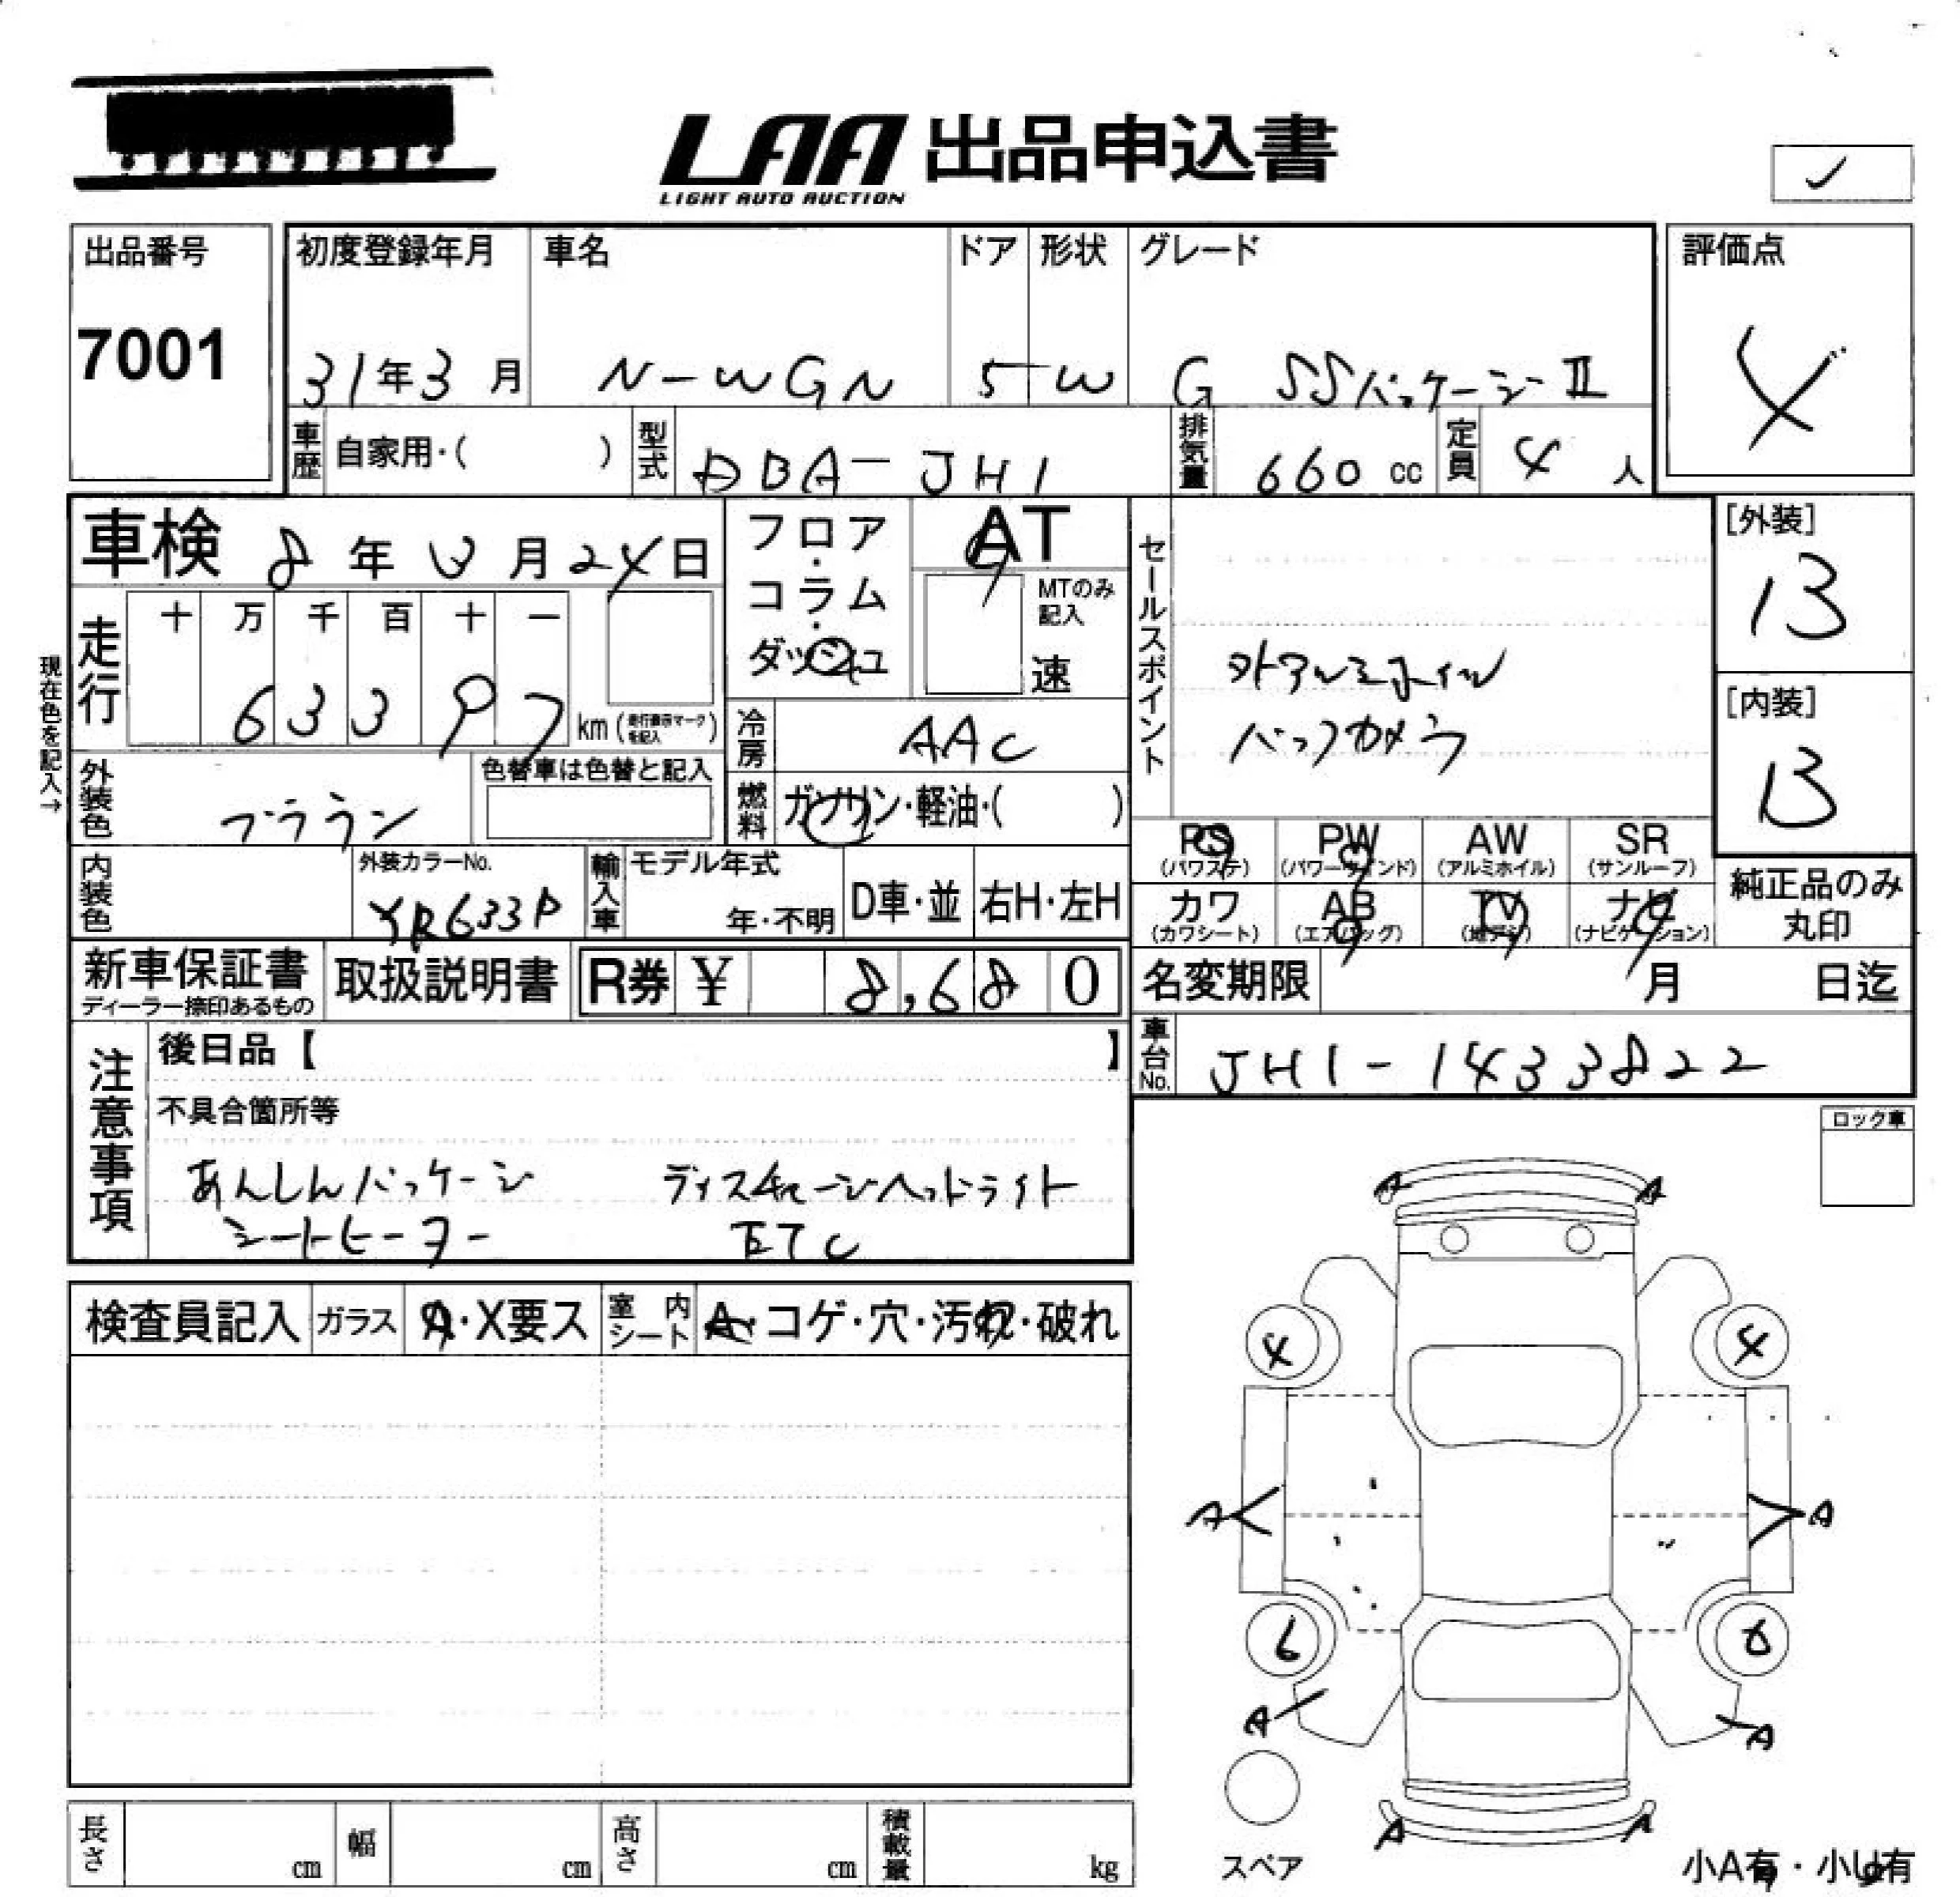 LAA 出品申込書
LIGHT AUTO AUCTION
出品番号 初度登録年月 車名 ドア 形状 グレード 評価点
7001 31年3月 N-WGN 5 W G SSパッケージII 4
車歴 自家用・( ) 型式 DBA-JH1 排気量 660 cc 定員 4 人
車検 8年 月24日 フロア・コラム・ダッシュ AT セールスポイント [外装]
MTのみ記入 速 B
走行 十 万 千 百 十 一
63397 km (走行表示マークを記入) 外アルミホイル [内装]
現在色を記入→
冷房 AAC バックカメラ B
外装色 ブラウン 色替車は色替と記入 燃料 ガソリン・軽油・( )
PS PW AW SR
(パワステ) (パワーウインド) (アルミホイル) (サンルーフ)
内装色 外装カラーNo. YR633P 輸入車 モデル年式 年・不明 D車・並 右H・左H
カワ AB TV ナビ 純正品のみ丸印
(カワシート) (エアバッグ) (地デジ) (ナビゲーション)
新車保証書 取扱説明書 R券 ¥ 8,680 名変期限 月 日迄
ディーラー捺印あるもの
注意事項 後日品【 】 車台No. JH1-1433822
不具合箇所等 ロック車
あんしんパッケージ ディスチャージヘッドライト
シートヒーター ETC
A A
検査員記入 ガラス A・X要ス 室内シート A・コゲ・穴・汚れ・破れ
4 4
A A
6 6
A A
A A
長さ cm 幅 cm 高さ cm 積載量 kg スペア 小A有・小U有